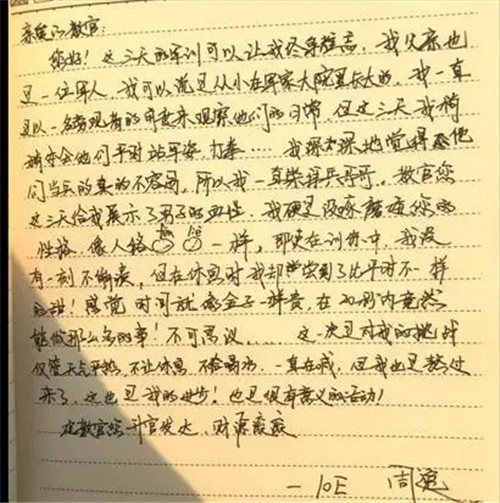 亲爱的教官:
您好!这三天的军训可以让我终身难忘,我父亲也
是一位军人,我可以说是从小在军家大院里长大的,我一直
是以一名旁观者的角度来观察他们的日常,但这三天我稍
稍体会他们平时站军姿,打拳……我深深地觉得他
们当兵的真的不容易,所以我一直崇拜兵哥哥,教官您
这三天给我展示了男子的血性,我硬是没琢磨透您的
性格,像人格 一样,即使在训练中,我没
有一刻不懈怠,但在休息时我却尝到了比平时不一样
的甜!感觉时间就像金子一样贵,在20秒内竟然
能做那么多的事!不可思议……这一次是对我的挑战
仅管天气平热,不让休息,不给喝水,一直在喊,但我也是熬过
来了,这也是我的进步!也是很有意义的活动!
祝教官您升官发达,财源滚滚
一10E 周